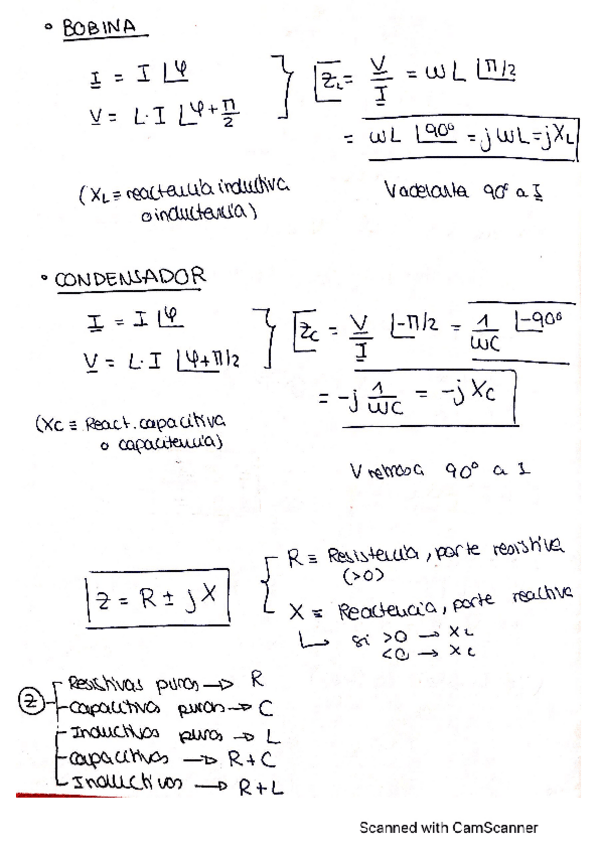 • BOBINA
I = I ∠φ
V = L·I ∠φ+π/2
Z_L = V/I = ωL ∠π/2
= ωL ∠90º = jωL = jX_L
(X_L ≡ reactancia inductiva
o inductancia)
V adelanta 90º a I
• CONDENSADOR
I = I ∠φ
V = L·I ∠φ+π/2
Z_C = V/I ∠-π/2 = 1/ωC ∠-90º
= -j 1/ωC = -j X_C
(X_C ≡ React. capacitiva
o capacitancia)
V retrasa 90º a I
Z = R ± jX
R ≡ Resistencia, parte resistiva
(>0)
X ≡ Reactancia, parte reactiva
↳ si >0 → X_L
<0 → X_C
Z
Resistivas puras → R
Capacitiva puras → C
Inductivos puros → L
Capacitivos → R+C
Inductivos → R+L
Scanned with CamScanner